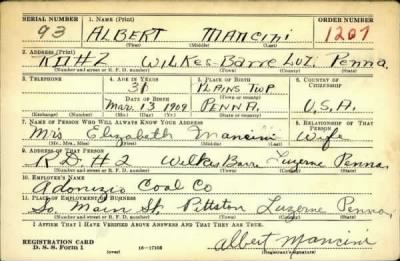 SERIAL NUMBER 1. NAME (Print) ORDER NUMBER
93 ALBERT MANCINI 1207
(First) (Middle) (Last)
2. ADDRESS (Print)
RD#2 WILKES-Barre LUZ. Penna.
(Number and street or R. F. D. number) (Town) (County) (State)
3. TELEPHONE 4. AGE IN YEARS 5. PLACE OF BIRTH 6. COUNTRY OF CITIZENSHIP
31 PLAINS TWP
DATE OF BIRTH (Town or county)
Mar. 13 1909 PENNA. U.S.A.
(Exchange) (Number) (Mo.) (Day) (Yr.) (State or country)
7. NAME OF PERSON WHO WILL ALWAYS KNOW YOUR ADDRESS 8. RELATIONSHIP OF THAT PERSON
Mrs Elizabeth Mancini Wife
(Mr., Mrs., Miss) (First) (Middle) (Last)
9. ADDRESS OF THAT PERSON
R.D.#2 Wilkes Barre Luzerne Penna.
(Number and street or R. F. D. number) (Town) (County) (State)
10. EMPLOYER'S NAME
Adonizio Coal Co
11. PLACE OF EMPLOYMENT OR BUSINESS
So. Main St. Pittston Luzerne Penna.
(Number and street or R. F. D. number) (Town) (County) (State)
I AFFIRM THAT I HAVE VERIFIED ABOVE ANSWERS AND THAT THEY ARE TRUE.
REGISTRATION CARD
D. S. S. Form 1 (over) 16-17105 Albert Mancini
(Registrant's signature)